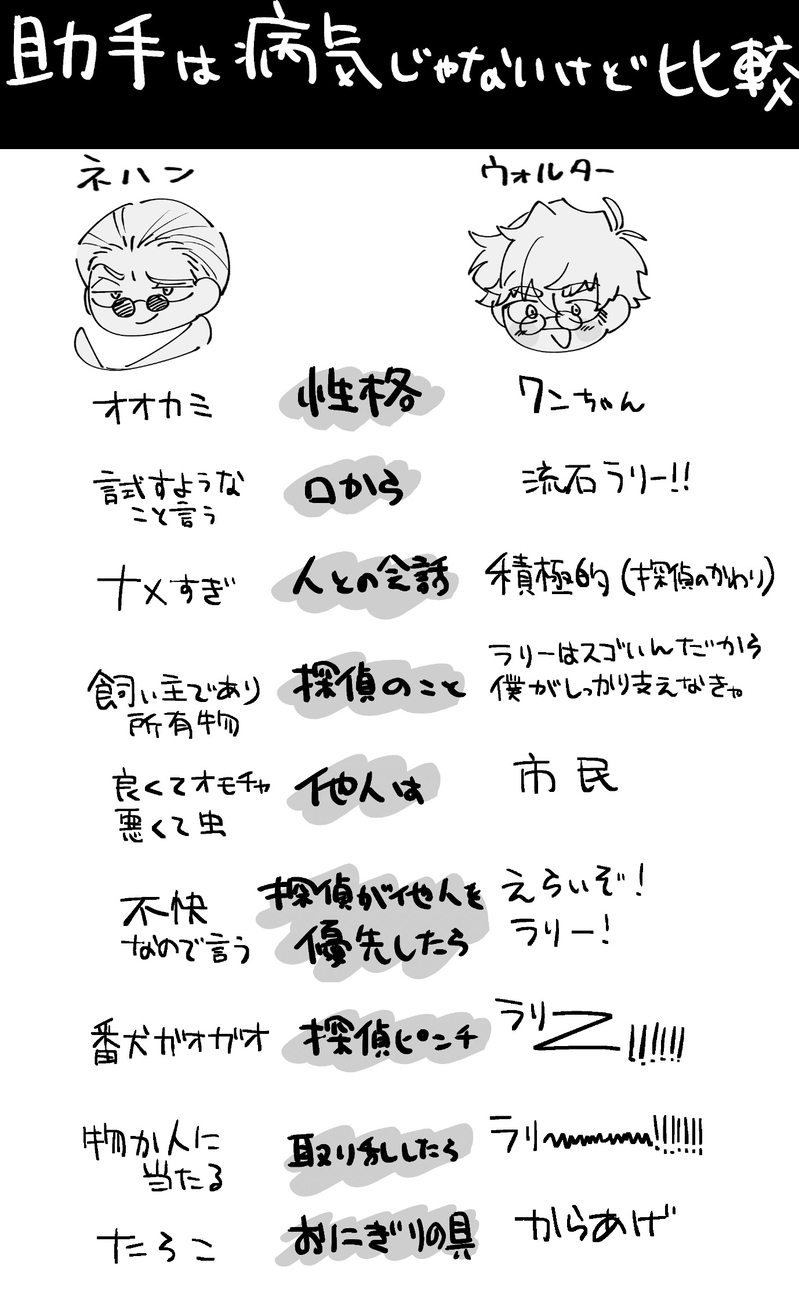 助手は病気じゃないけど比較
ネハン
ウォルター
オオカミ
性格
ワンちゃん
試すような
こと言う
口から
流石ラリー!!
ナメすぎ
人との会話
積極的(探偵のかわり)
飼い主であり
所有物
探偵のこと
ラリーはスゴいんだから
僕がしっかり支えなきゃ
良くてオモチャ
悪くて虫
他人は
市民
不快
なので言う
探偵が他人を
優先したら
えらいぞ!
ラリー!
番犬ガオガオ
探偵ピンチ
ラリZ!!!!!!
物か人に
当たる
取り乱したら
ラリ〰!!!!!!!
たらこ
おにぎりの具
からあげ